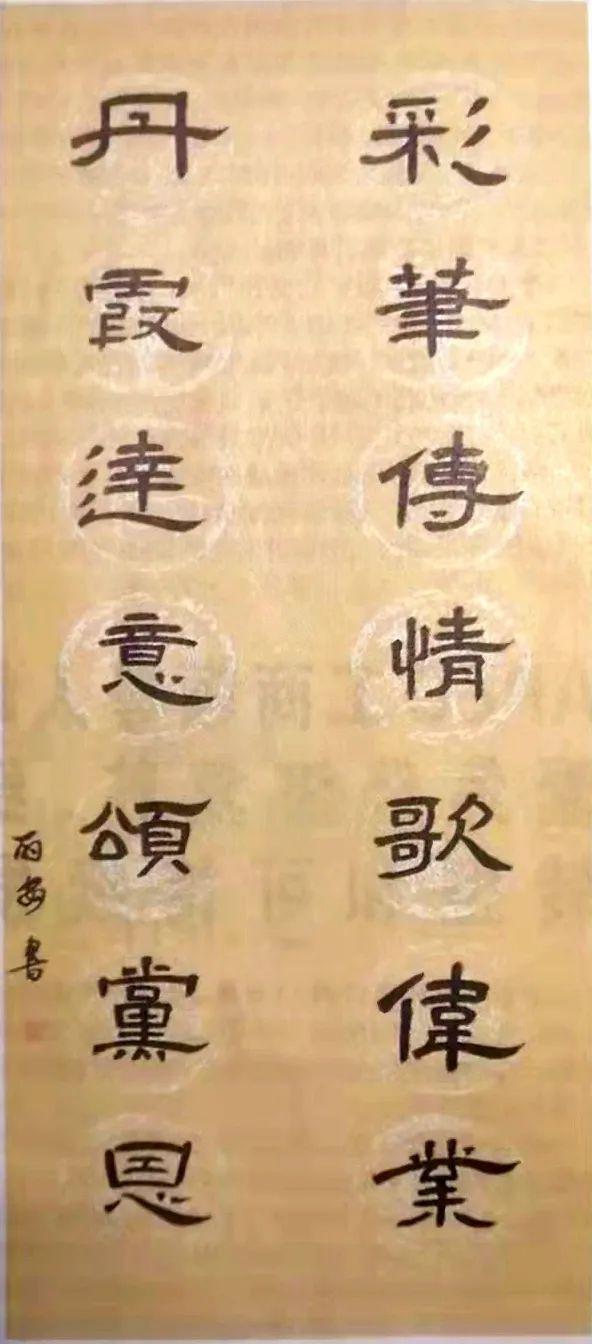 彩筆傳情歌偉業
丹霞達意頌黨恩
書